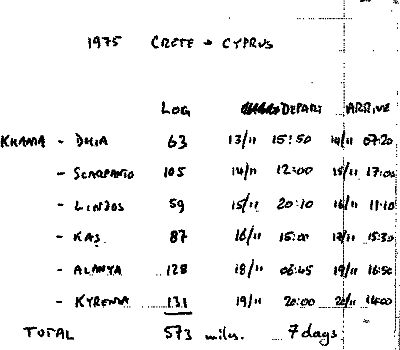 1975 CRETE → CYPRUS
LOG DEPART ARRIVE
KHANIA - DHIA 63 13/11 15:50 14/11 07:20
- SCARPANTO 105 14/11 12:00 15/11 17:00
- LINDOS 59 15/11 20:10 16/11 11:10
- KAŞ 87 16/11 15:00 17/11 15:30
- ALANYA 128 18/11 06:45 19/11 16:50
- KYRENIA 131 19/11 20:00 14:00
TOTAL 573 miles. 7 days